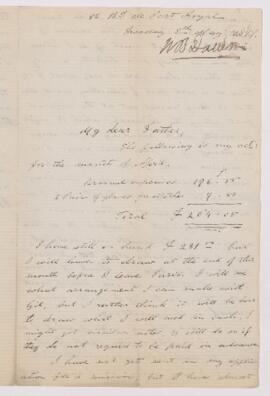 82 Bd. de Port Royal
Tuesday 8th of May 1883
W B Dawson
My dear Father,
The following is my act
for the month of April.
Personal expenses 196 - 05
2 Pair of gloves
Total 204 - 05
I have still on hand 281 but
I will have to draw at the end of this
month before I leave Paris. I will see
what arrangement I can make with
Gil, but I rather think it will be best
to draw what I will need in
might get circular notes, & still do so if
they do not require to be paid in advance.
I have not yet sent in my applic
ation for a mission, but I have almost